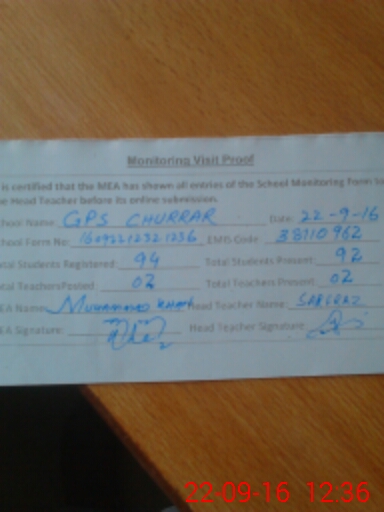 Monitoring Visit Proof
is certified that the MEA has shown all entries of the School Monitoring Form to
e Head Teacher before its online submission.
chool Name: GPS CHURRAR Date: 22-9-16
chool Form No: EMIS Code: 38110962
tal Students Registered: 94 Total Students Present: 92
tal Teachers Posted 02 Total Teachers Present: 02
EA Name: MUHAMMAD KHAN Head Teacher Name: SARFRAZ
EA Signature: Head Teacher Signature:
22-09-16 12:36